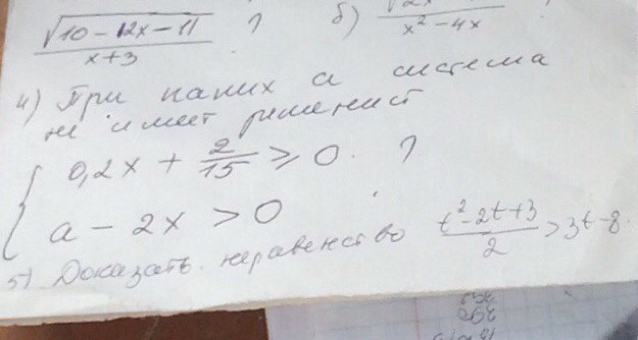 √10 - |2x - 11| / x+3 ? б)
x² - 4x
4) При каких а система
не имеет решений
{ 0,2x + 2/15 ≥ 0. ?
a - 2x > 0
5) Доказать неравенство (t² - 2t + 3)/2 > 3t - 8.